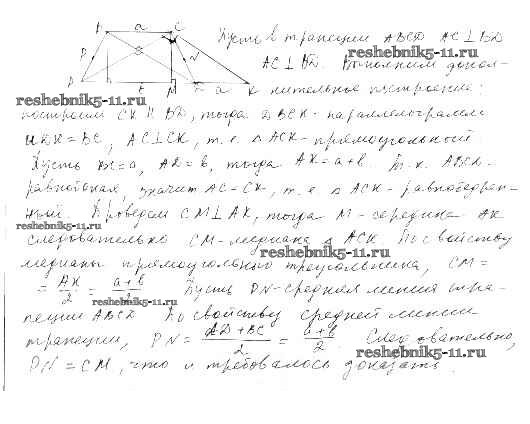 B a C Пусть в трапеции ABCD AC⊥BD
P N AC⊥BD. Выполним допол-
A b M D a K нительное построение:
reshebnik5-11.ru
построим CK ∥ BD, тогда DBCK - параллелограмм
и DK = BC, AC⊥CK, т.е. △ACK - прямоугольный.
Пусть BC=a, AD=b, тогда AK=a+b. Т.к. ABCD -
reshebnik5-11.ru
равнобокая, значит AC=CK, т.е. △ACK - равнобедрен-
ный. Проведем CM⊥AK, тогда M - середина AK
reshebnik5-11.ru
следовательно CM - медиана △ACK. По свойству
медианы прямоугольного треугольника, CM =
= AK/2 = a+b/2. Пусть PN - средняя линия тра-
reshebnik5-11.ru
пеции ABCD. По свойству средней линии
трапеции, PN = AD+BC/2 = a+b/2. Следовательно,
reshebnik5-11.ru
PN = CM, что и требовалось доказать.